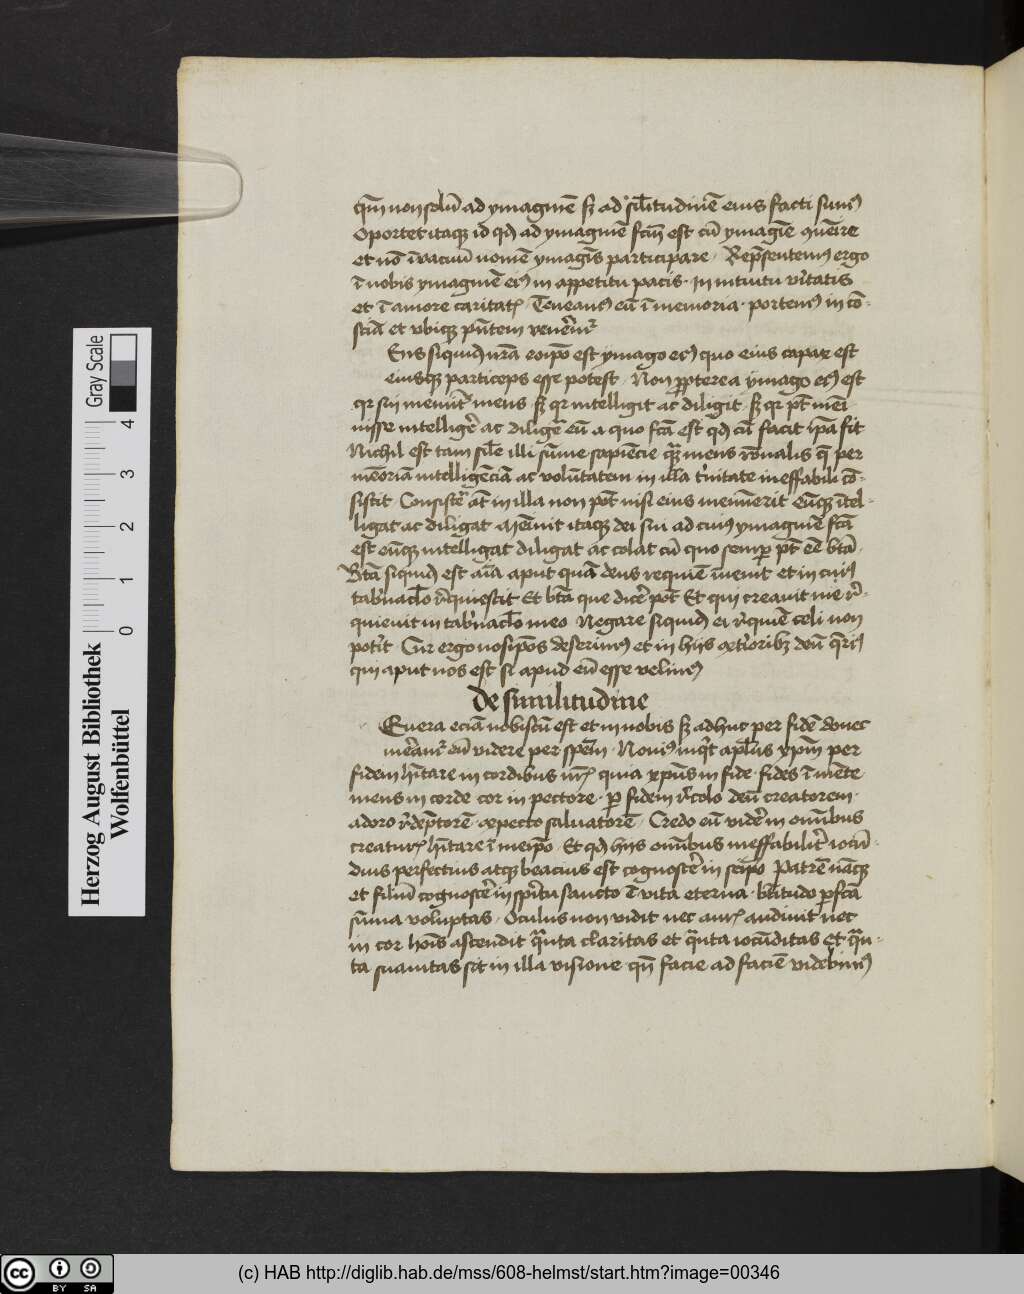 qm̄ non solū ad ymaginē sȝ ad sil̄itudinē eius facti sumꝰ
Oportet itaqȝ id qd̄ ad ymaginē fcm̄ est cū ymagīe ꝯuenire
et nō ī vacuū nomē ymagīs participare · Rep̄sentemꝰ ergo
ī nobis ymaginē eiꝰ in appetitu pacis · in intuitu v̓itatis
et ī amore caritatꝭ · Teneamꝰ eū ī memoria · portemꝰ in cō-
sciā et vbiqȝ p̄ntem ven̓emr̄
Ens siquid̄ nr̄a eoip̄o est ymago eiꝰ quo eius capax est
eiusqȝ particeps esse potest · Non ꝓpterea ymago eiꝰ est
qr sui meminit mens · sȝ qr intelligit ac diligit · sȝ qr pt̄ memi-
nisse intellig̓e ac dilig̓e eū a quo fcā est qd̄ cū facit ip̄a fit
Nichil est tam sil̄e illi sūme sapiēcie qȝ mens rōnalis q̄ per
memoriā intelligēciā ac volūtatem in illa t̓nitate ineffabili cō-
sistit · Consist̓e āt in illa non pōt nisi eius meminerit eūqȝ ītel-
ligat ac diligat · Meminit itaqȝ dei sui ad cuiꝰ ymaginē fcā
est eūqȝ intelligat diligat ac colat cū quo semꝑ pt̄ eē bt̄a ·
Bt̄a siquid̄ est aīa aput quā deus requiē īuenit et in cuiꝰ
tab̓nacl̄o r̓quiescit Et bt̄a que dic̓e pōt Et qui creauit me r̓-
quieuit in tab̓nacl̄o meo · Negare siquid̄ ei r̓quiē celi non
pot̓it · Cur ergo nosip̄os deserimꝰ et in hijs ext̓ioribȝ deū q̄rimꝰ
qui aput nos est si apud eū esse velimꝰ
De similitudine
Euera eciā nobiscū est et in nobis sȝ adhuc per fidē donec
m̓eamr̄ eū videre per spem̄ · Nouimꝰ inq̓t apl̄us xp̄m per
fidem h̄itare in cordibus nr̄ꝭ quia xp̄us in fide · fides ī mēte
mens in corde cor in pectore · ꝑ fidem r̓colo deū creatorem ·
adoro r̓dēptorē · expecto saluatorē · Credo eū vid̓e in om̄ibus
creaturꝭ h̄itare ī meip̄o · Et qd̄ hijs om̄ibus ineffabilit̓ iocū-
dius perfectius atqȝ beacius est cognosc̓e in seip̄o · Patrē nāqȝ
et filiū cognosc̓e in spiritu sancto ē vita eterna · bt̄itudo ꝑfcā
sūma voluptas · Oculus non vidit nec aurꝭ audiuit nec
in cor hōis ascendit quāta claritas et quāta iocūditas et quā-
ta suauitas sit in illa visione qn̄ facie ad faciē videbimꝰ
Herzog August Bibliothek
Wolfenbüttel
Gray Scale
0 1 2 3 4
cc BY SA
(c) HAB http://diglib.hab.de/mss/608-helmst/start.htm?image=00346